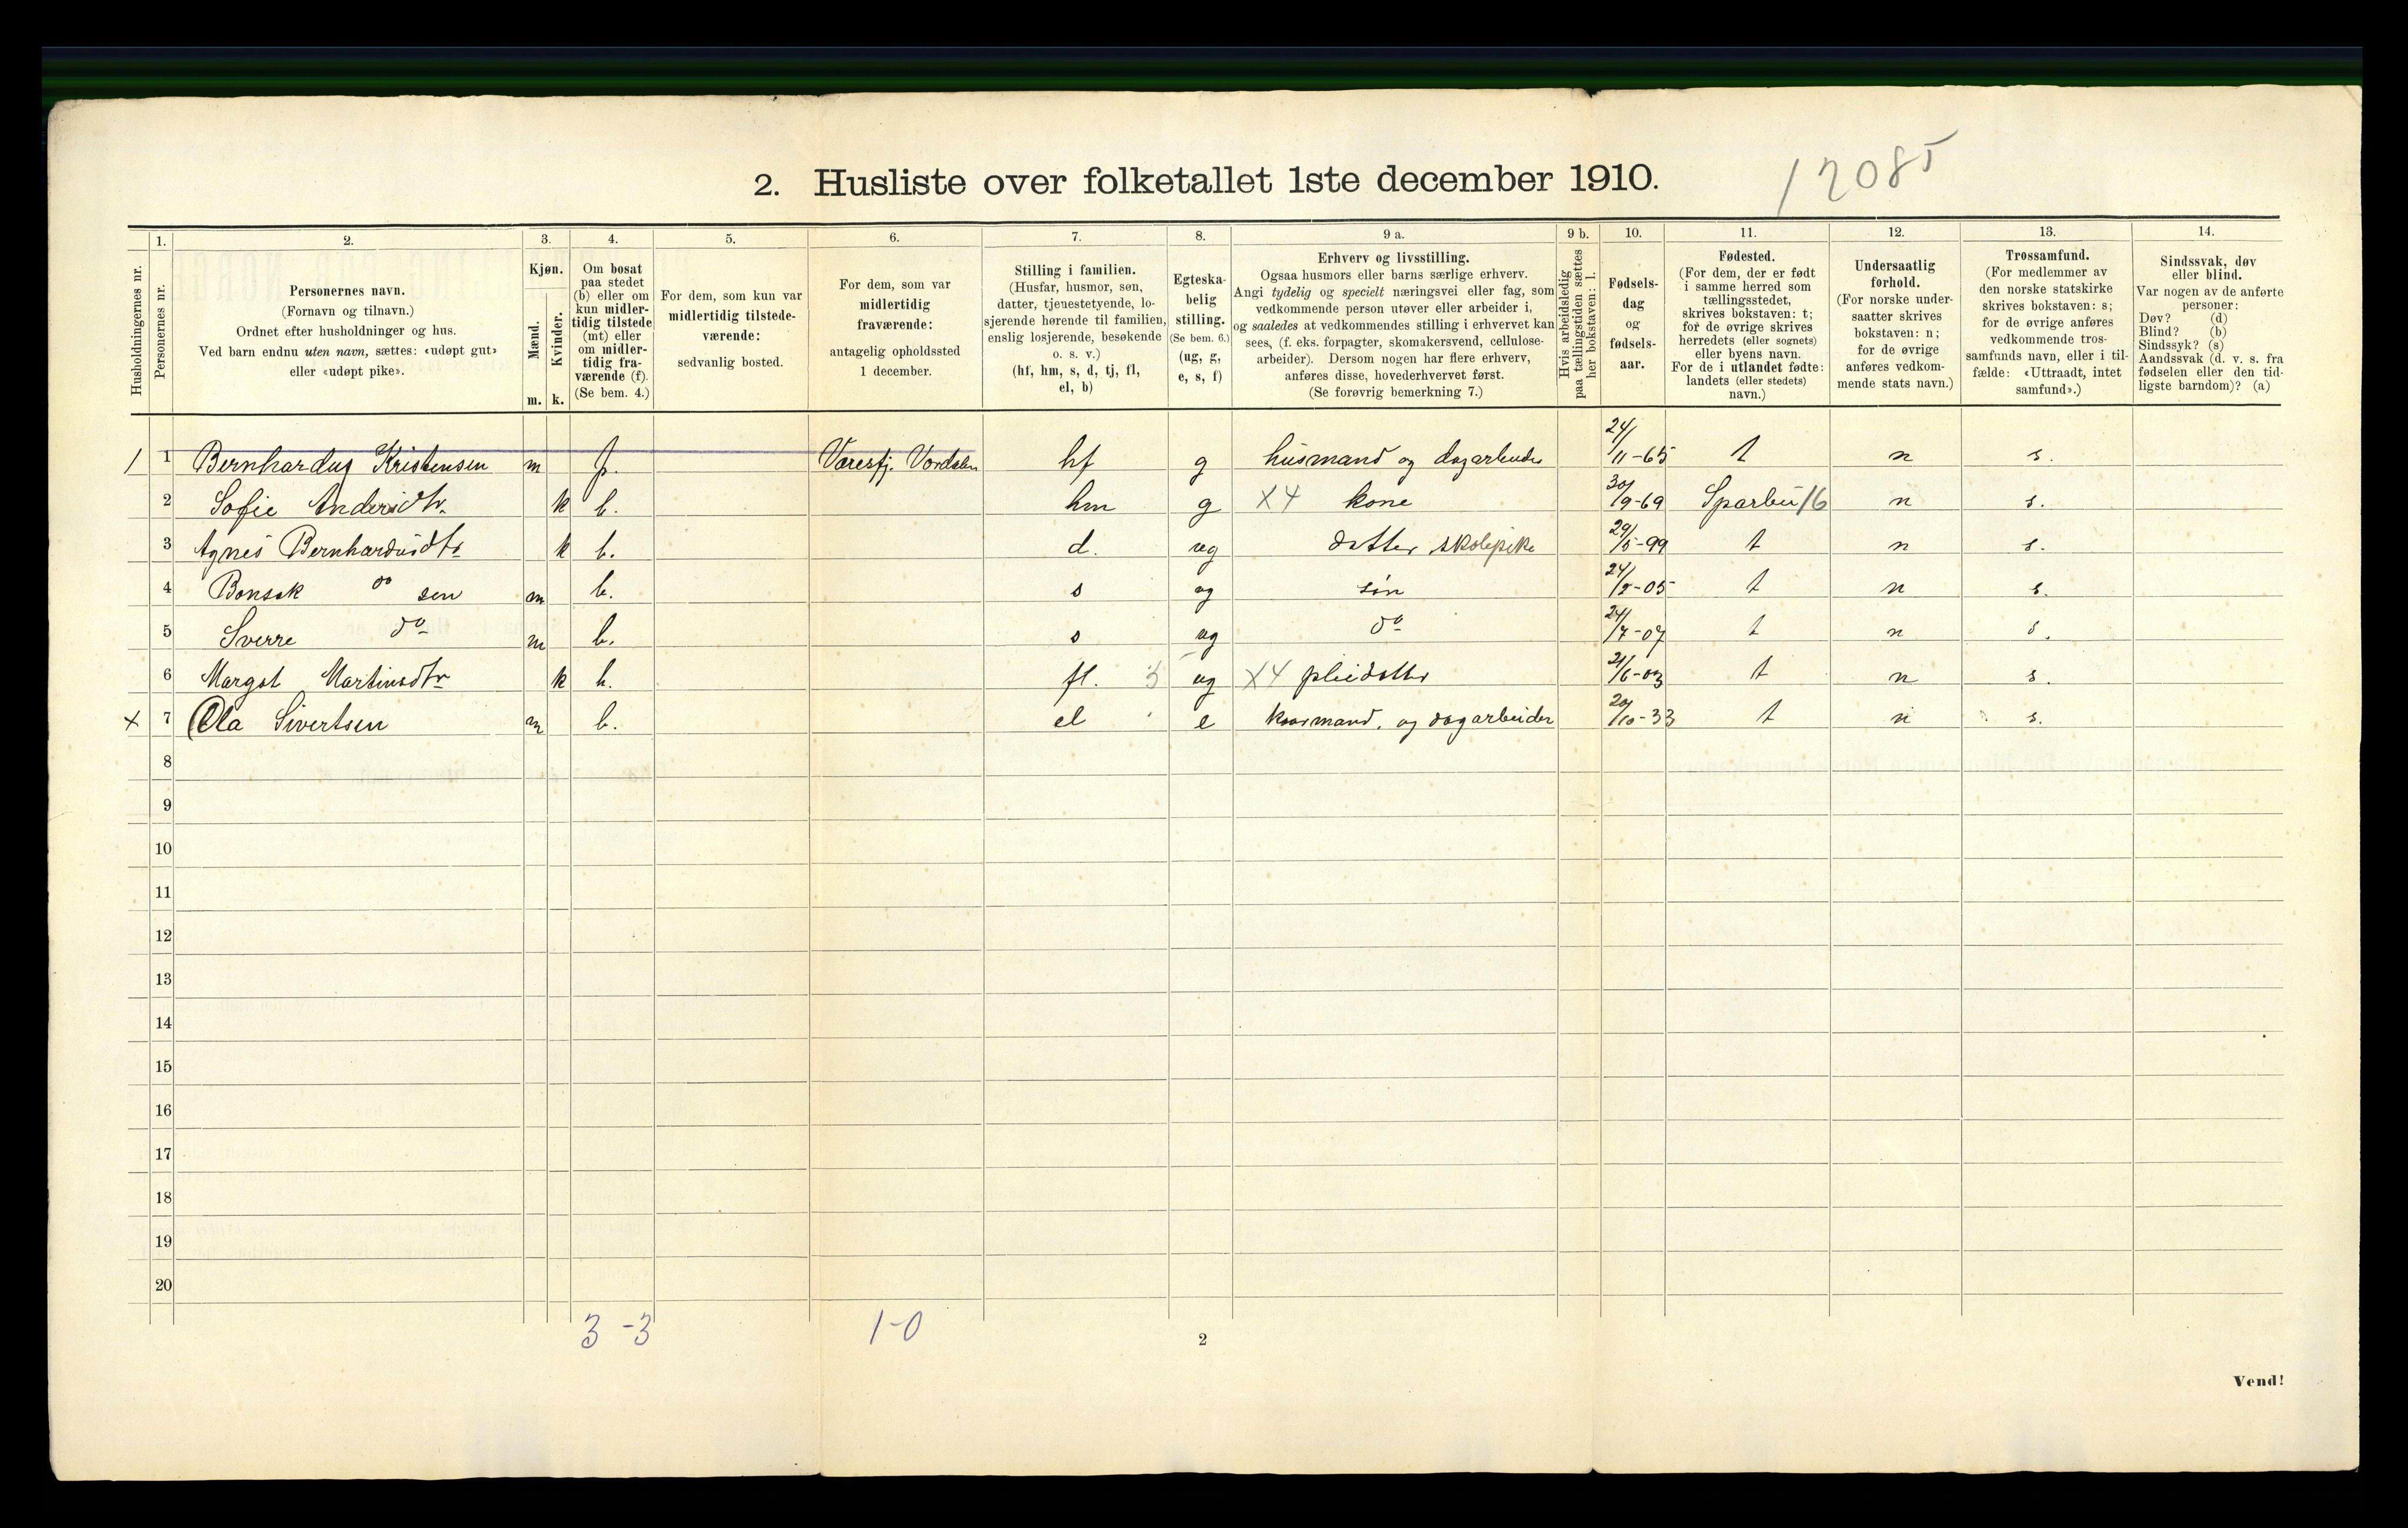 2. Husliste over folketallet 1ste december 1910.
12085
Husholdningernes nr.
1.
Personernes nr.
2.
Personernes navn.
(Fornavn og tilnavn.)
Ordnet efter husholdninger og hus.
Ved barn endnu uten navn, sættes: «udøpt gut»
eller «udøpt pike».
3.
Kjøn.
Mænd.
Kvinder.
m. k.
4.
Om bosat
paa stedet
(b) eller om
kun midler-
tidig tilstede
(mt) eller
om midler-
tidig fra-
værende (f).
(Se bem. 4.)
5.
For dem, som kun var
midlertidig tilstede-
værende:
sedvanlig bosted.
6.
For dem, som var
midlertidig
fraværende:
antagelig opholdssted
1 december.
7.
Stilling i familien.
(Husfar, husmor, søn,
datter, tjenestetyende, lo-
sjerende hørende til familien,
enslig losjerende, besøkende
o. s. v.)
(hf, hm, s, d, tj, fl,
el, b)
8.
Egteska-
belig
stilling.
(Se bem. 6.)
(ug, g,
e, s, f)
9 a.
Erhverv og livsstilling.
Ogsaa husmors eller barns særlige erhverv.
Angi tydelig og specielt næringsvei eller fag, som
vedkommende person utøver eller arbeider i,
og saaledes at vedkommendes stilling i erhvervet kan
sees, (f. eks. forpagter, skomakersvend, cellulose-
arbeider). Dersom nogen har flere erhverv,
anføres disse, hovederhvervet først.
(Se forøvrig bemerkning 7.)
9 b.
Hvis arbeidsledig
paa tællingstiden sættes
her bokstaven: l.
10.
Fødsels-
dag
og
fødsels-
aar.
11.
Fødested.
(For dem, der er født
i samme herred som
tællingsstedet,
skrives bokstaven: t;
for de øvrige skrives
herredets (eller sognets)
eller byens navn.
For de i utlandet fødte:
landets (eller stedets)
navn.)
12.
Undersaatlig
forhold.
(For norske under-
saatter skrives
bokstaven: n;
for de øvrige
anføres vedkom-
mende stats navn.)
13.
Trossamfund.
(For medlemmer av
den norske statskirke
skrives bokstaven: s;
for de øvrige anføres
vedkommende tros-
samfunds navn, eller i til-
fælde: «Uttraadt, intet
samfund».)
14.
Sindssvak, døv
eller blind.
Var nogen av de anførte
personer:
Døv? (d)
Blind? (b)
Sindssyk? (s)
Aandssvak (d. v. s. fra
fødselen eller den tid-
ligste barndom)? (a)
1 1 Bernhardus Kristensen m f. Vordalen hf g husmand og dagarbeider 24/11-65 t n s.
2 Sofie Andersdtr. k b. hm g X4 kone 30/9-69 Sparbu 16 n s.
3 Agnes Bernhardusdtr k b. d. ug datter skolepike 29/5-99 t n s.
4 Bonsak do sen m b. s ug søn t n s.
5 Sverre do m b. s ug do 24/7-07 t n s.
6 Margot Martinsdtr k b. fl. ug X4 pleidatter 21/6-03 t n s.
x 7 Ola Sivertsen m b. el e kaarmand. og dagarbeider 20/10-33 t n s.
8
9
10
11
12
13
14
15
16
17
18
19
20
3 -3 1-0
2
Vend!